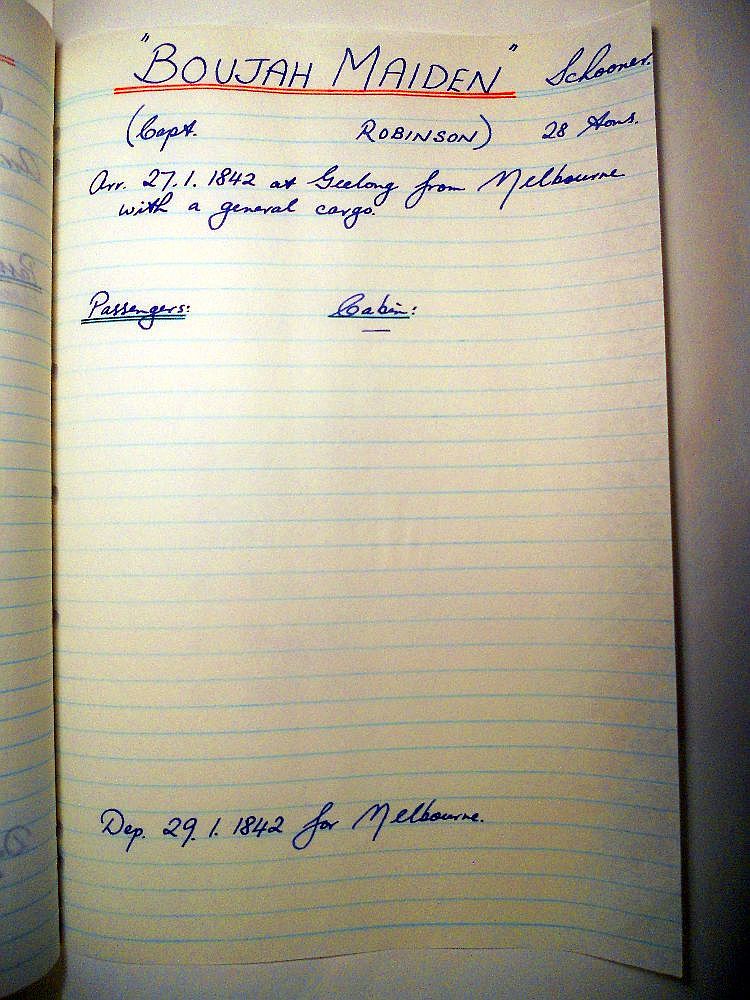 "BOUJAH MAIDEN" Schooner.
(Capt. ROBINSON) 28 tons.
Arr. 27.1.1842 at Geelong from Melbourne
with a general cargo.
Passengers: Cabin:
—
Dep. 29.1.1842 for Melbourne.